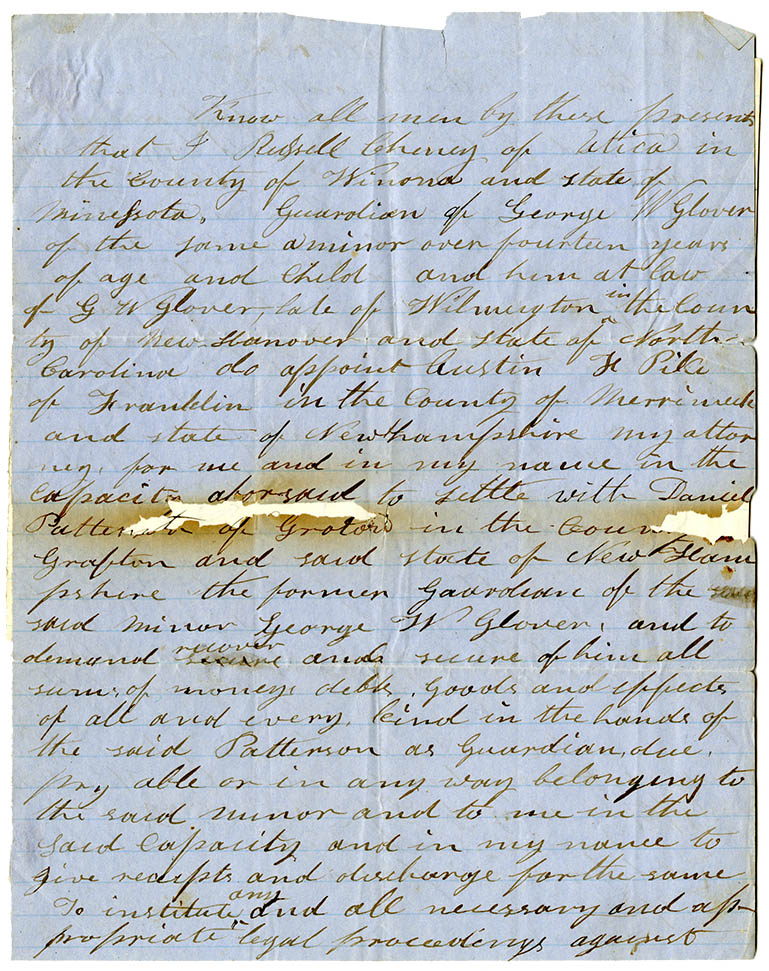 Know all men by these presents
that I Russell Cheney of Utica in
the County of Winona and state of
Minessota, Guardian of George W Glover
of the same a minor over fourteen years
of age and Child and heir at law
of G W Glover, late of Wilmington in the Coun
ty of New Hanover and state of North
Carolina do appoint Austin F Pike
of Franklin in the County of Merrimeck
and state of Newhampshire my attor
ney, for me and in my name in the
Capacity aforsaid to settle with Daniel
Patterson of Groton in the County
Grafton and said state of New Ham
pshire the former Gaardian of the
said minor George W Glover, and to
demand recover and secure of him all
sums of money, debts, Goods and effects
of all and every, kind in the hands of
the said Patterson as Guardian, due,
pay able or in any way belonging to
the said minor and to me in the
said Capacity and in my name to
give reciepts and discharge for the same
To institute any and all necessary and ap-
propriate legal proceedings against